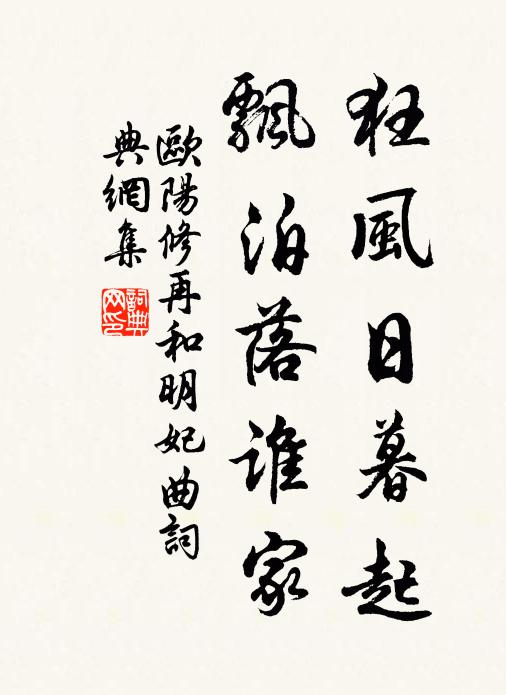 狂風日暮起
飄泊落誰家
歐陽修再和明妃曲詞
典網集
詞典
網印